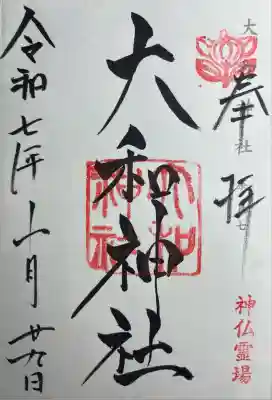 奉拝
神仏霊場
大和神社
令和七年十一月廿九日